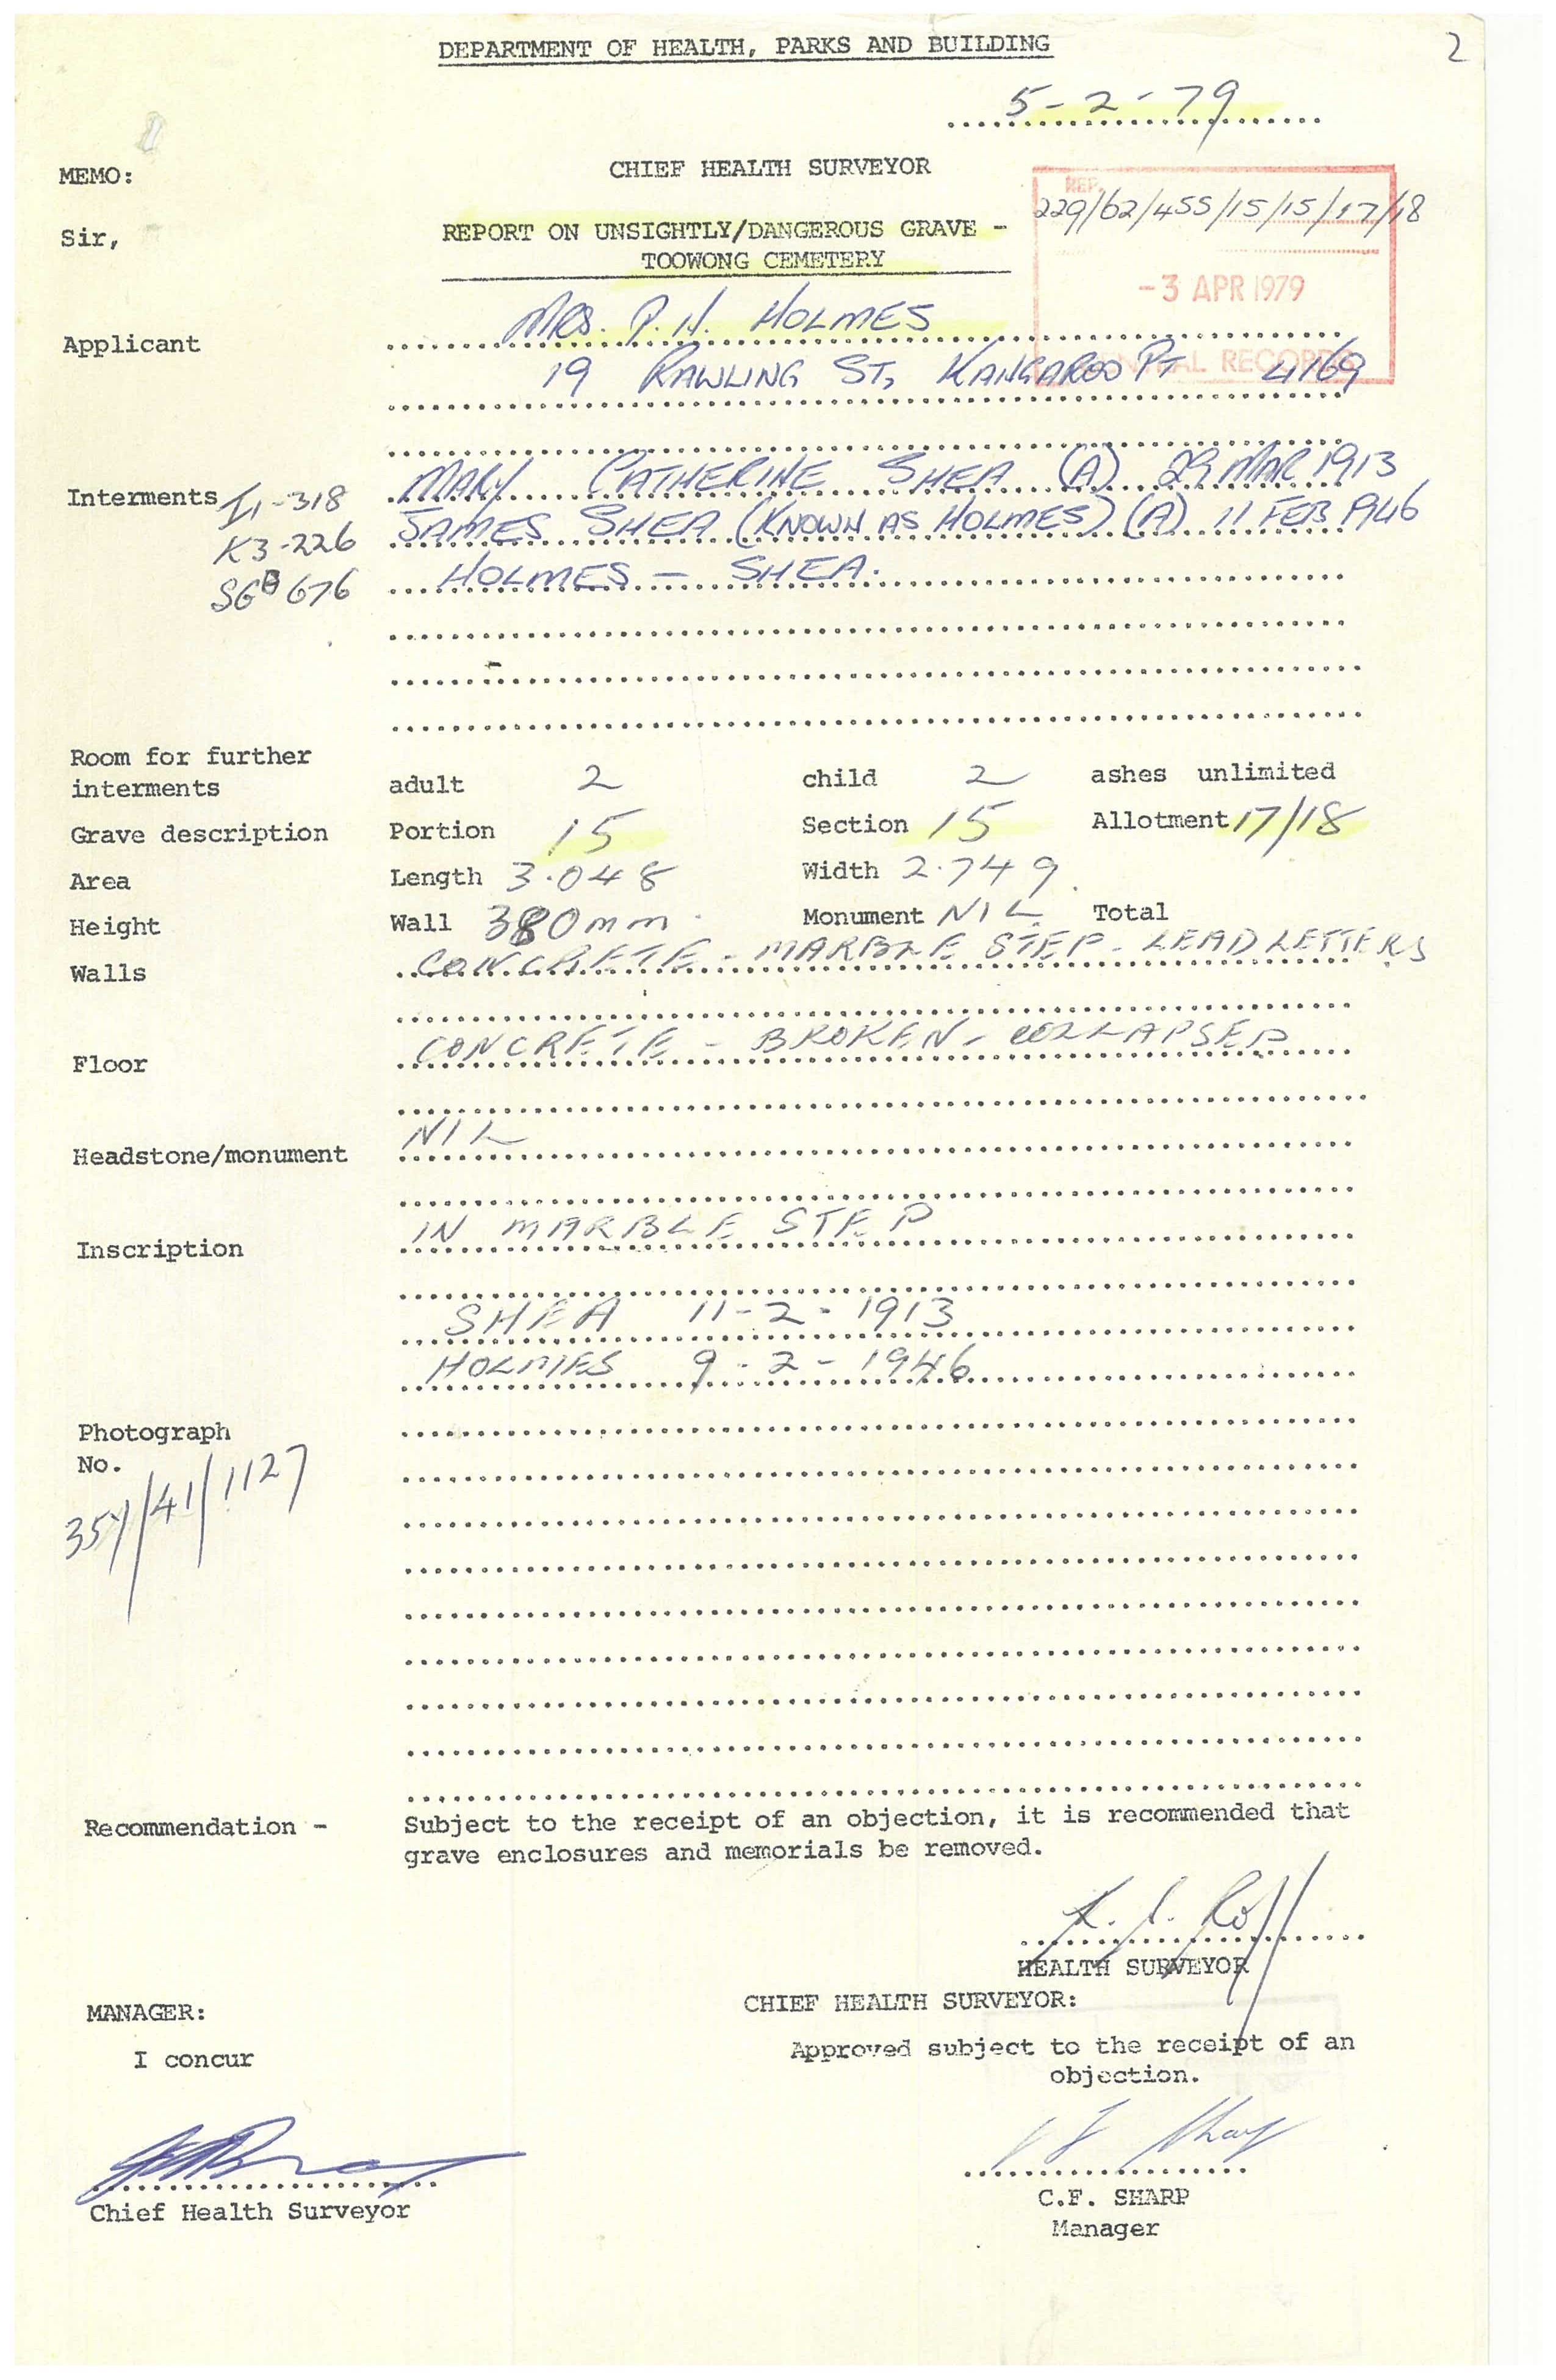 DEPARTMENT OF HEALTH, PARKS AND BUILDING
2
5-2-79
MEMO:
CHIEF HEALTH SURVEYOR
REP.
229/62/455/15/15/17/18
Sir,
REPORT ON UNSIGHTLY/DANGEROUS GRAVE -
TOOWONG CEMETERY
-3 APR 1979
CENTRAL RECORDS
Applicant MRS. P.H. HOLMES
19 RAWLING ST, KANGAROO PT 4169
Interments MARY CATHERINE SHEA (A) 29 MAR 1913
-318
K3-226 JAMES SHEA (KNOWN AS HOLMES) (A) 11 FEB 1946
676 HOLMES - SHEA.
Room for further
interments adult 2 child 2 ashes unlimited
Grave description Portion 15 Section 15 Allotment 17/18
Area Length 3.048 Width 2.749
Height Wall 380mm Monument NIL Total
Walls CONCRETE - MARBLE STEP - LEAD LETTERS
Floor CONCRETE - BROKEN - COLLAPSED
Headstone/monument NIL
Inscription IN MARBLE STEP
SHEA 11-2-1913
HOLMES 9-2-1946
Photograph
No.
/41/1127
Recommendation - Subject to the receipt of an objection, it is recommended that
grave enclosures and memorials be removed.
HEALTH SURVEYOR
MANAGER:
CHIEF HEALTH SURVEYOR:
I concur
Approved subject to the receipt of an
objection.
Chief Health Surveyor
C.F. SHARP
Manager